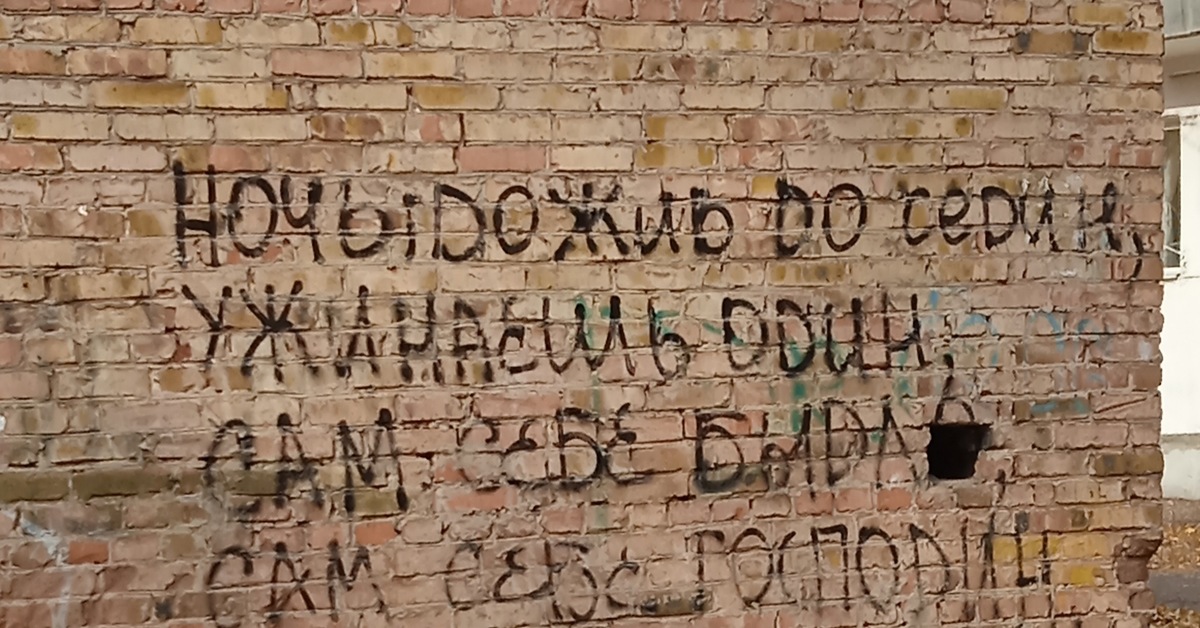 НОЧЫ ДОЖИВ ДО СЕДИН,
УЖИНАЕШЬ ОДИН,
САМ СЕБЕ БЫДЛО,
САМ СЕБЕ ГОСПОДИН